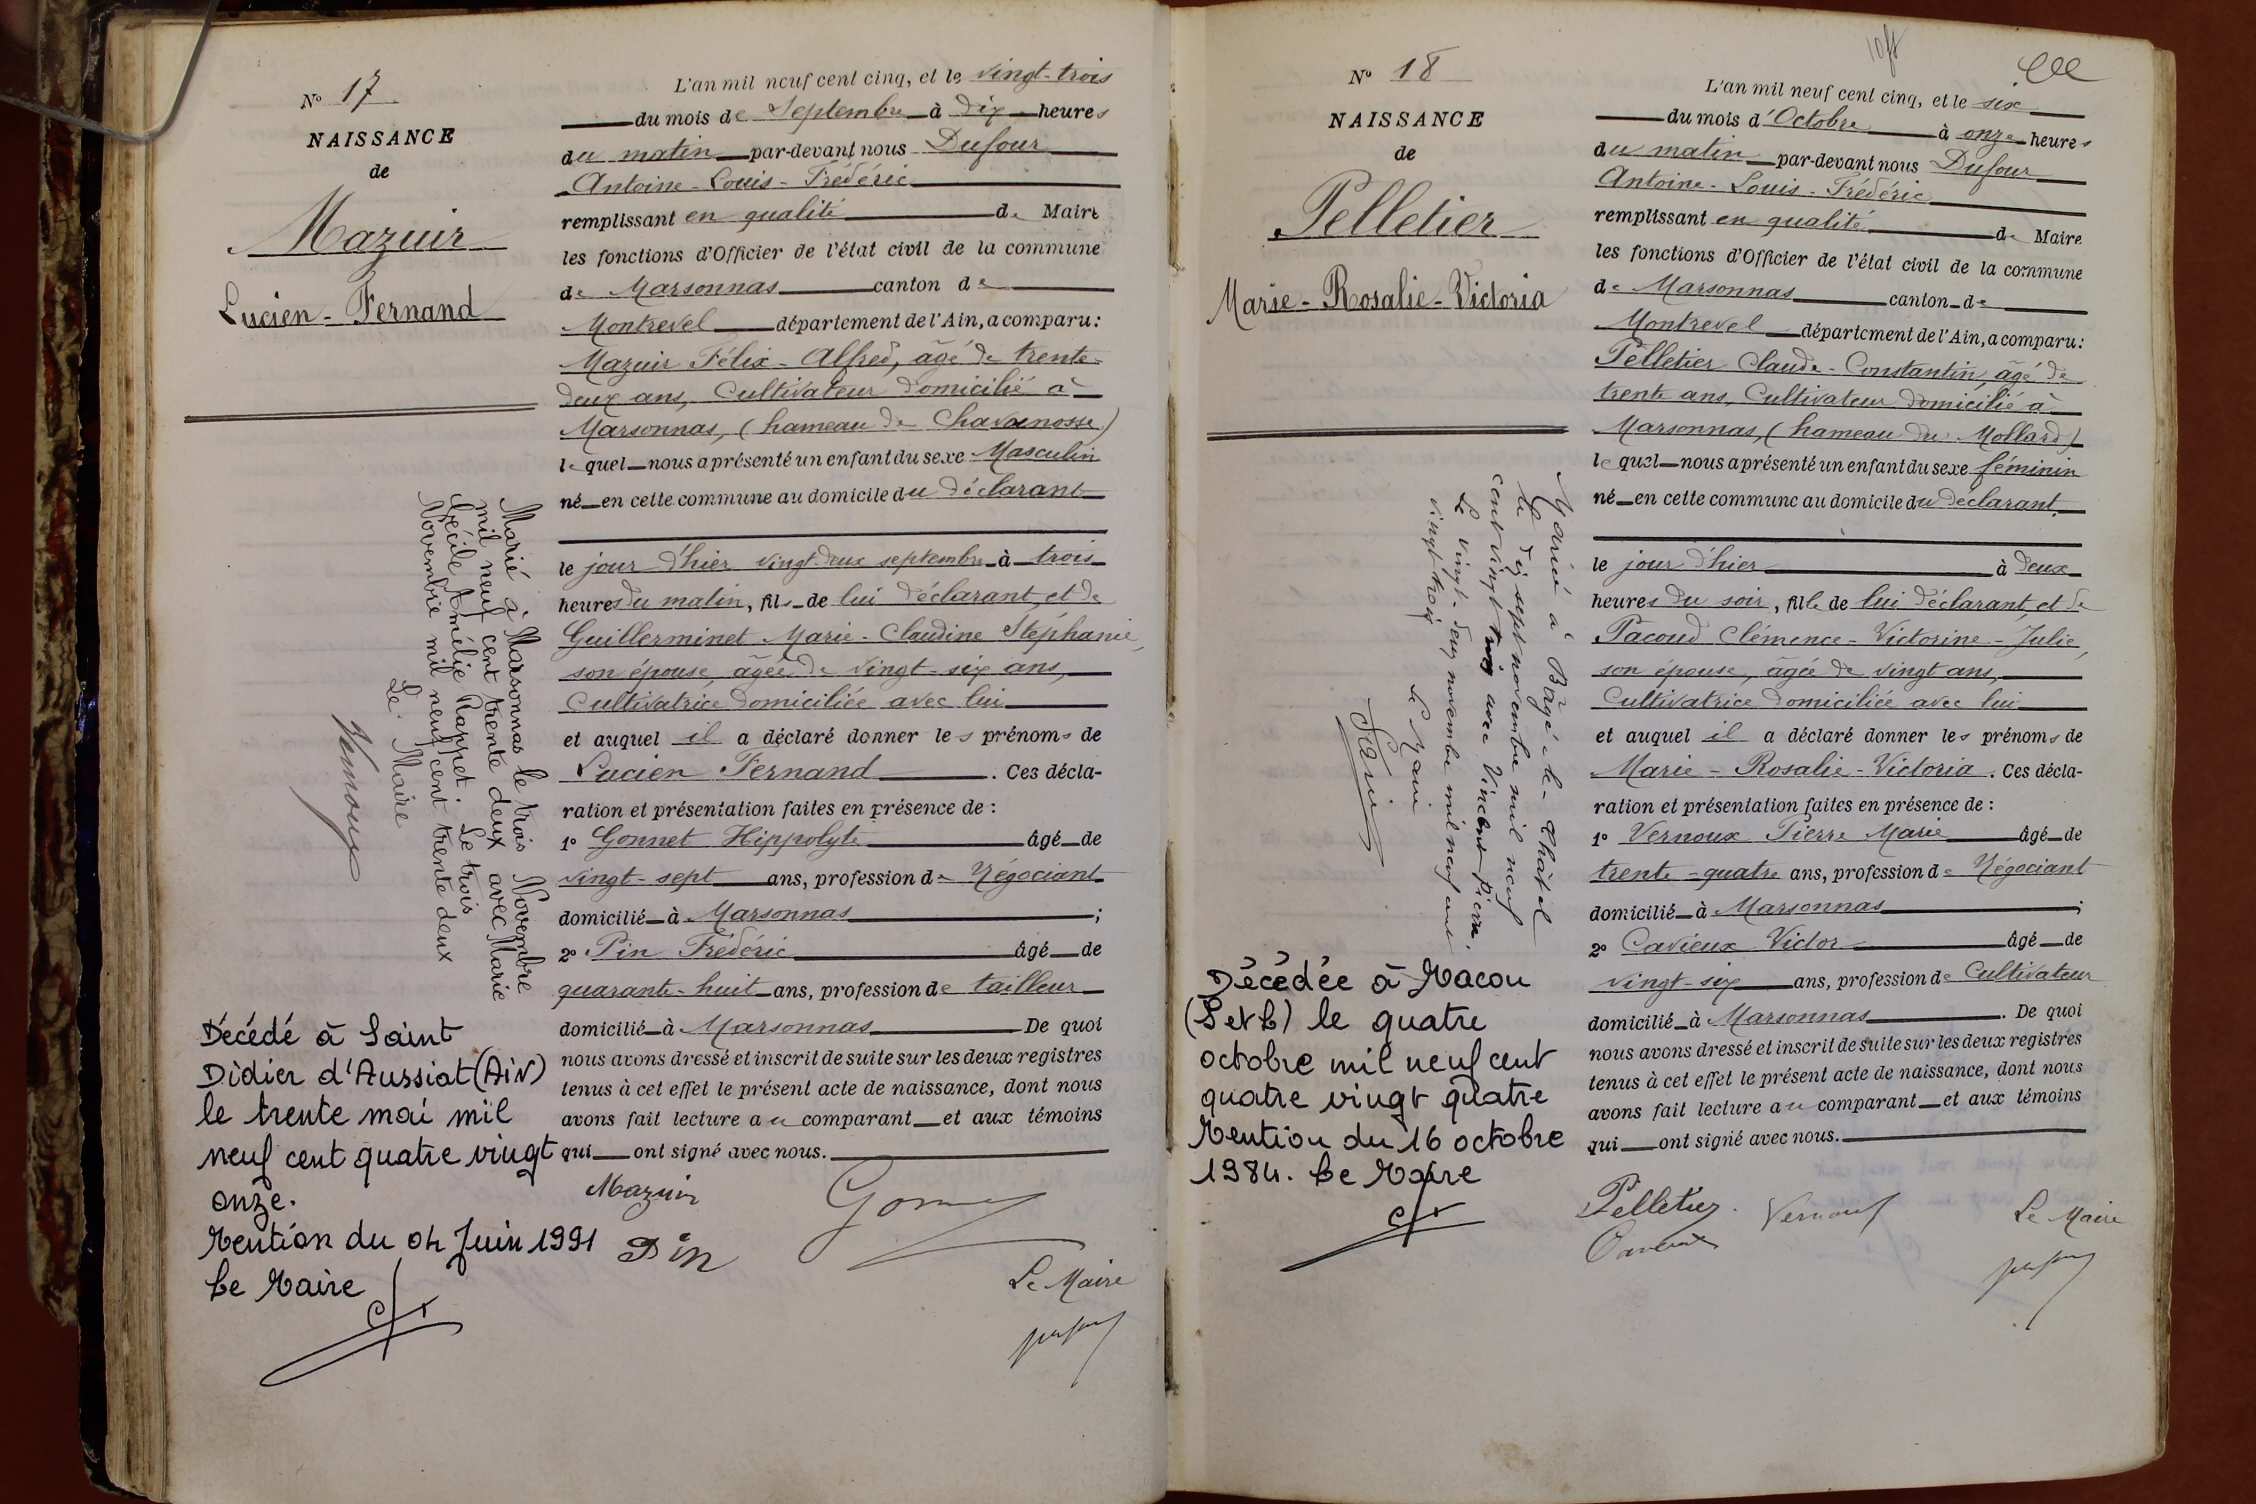 N° 17
NAISSANCE
de
Mazuir
Lucien - Fernand
Marié à Marsonnas le trois Novembre
mil neuf cent trente deux avec Marie
Cécile Amélie Rappet. Le trois
Novembre mil neuf cent trente deux
Le Maire
Vernoux
Décédé à Saint
Didier d'Aussiat (Ain)
le trente mai mil
neuf cent quatre vingt
onze.
Mention du 04 Juin 1991
Le Maire
L'an mil neuf cent cinq, et le vingt-trois
du mois de Septembre à dix heures
du matin par-devant nous Dufour
Antoine - Louis - Frédéric
remplissant en qualité de Maire
les fonctions d'Officier de l'état civil de la commune
de Marsonnas canton de
Montrevel département de l'Ain, a comparu :
Mazuir Félix - Alfred, âgé de trente-
deux ans, Cultivateur domicilié à
Marsonnas, (hameau de Chavanosse)
lequel nous a présenté un enfant du sexe Masculin
né en cette commune au domicile du déclarant
le jour d'hier vingt-deux septembre à trois
heures du matin, fils de lui déclarant, et de
Guillerminet Marie - Claudine Stéphanie,
son épouse, âgée de vingt-six ans,
Cultivatrice domiciliée avec lui
et auquel il a déclaré donner les prénoms de
Lucien Fernand . Ces décla-
ration et présentation faites en présence de :
1° Gonnet Hippolyte âgé de
vingt-sept ans, profession de Négociant
domicilié à Marsonnas ;
2° Pin Frédéric âgé de
quarante-huit ans, profession de tailleur
domicilié à Marsonnas De quoi
nous avons dressé et inscrit de suite sur les deux registres
tenus à cet effet le présent acte de naissance, dont nous
avons fait lecture au comparant et aux témoins
qui ont signé avec nous.
Mazuir
Pin
Le Maire
N° 18
NAISSANCE
de
Pelletier
Marie - Rosalie - Victoria
Mariée à Bâgé-le-Châtel
le dix sept novembre mil neuf
cent vingt trois avec Vincent Pierre.
Le vingt-deux novembre mil neuf cent
vingt trois
Le Maire
Décédée à Macon
(S et L) le quatre
octobre mil neuf cent
quatre vingt quatre
Mention du 16 octobre
1984. Le Maire
L'an mil neuf cent cinq, et le six
du mois d'Octobre à onze heures
du matin par-devant nous Dufour
Antoine - Louis - Frédéric
remplissant en qualité de Maire
les fonctions d'Officier de l'état civil de la commune
de Marsonnas canton de
Montrevel département de l'Ain, a comparu :
Pelletier Claude - Constantin, âgé de
trente ans, Cultivateur domicilié à
Marsonnas, (hameau du Mollard)
lequel nous a présenté un enfant du sexe féminin
né en cette commune au domicile du déclarant
le jour d'hier à deux
heures du soir, fille de lui déclarant, et de
Pacoud Clémence - Victorine - Julie,
son épouse, âgée de vingt ans,
Cultivatrice domiciliée avec lui
et auquel il a déclaré donner les prénoms de
Marie - Rosalie - Victoria . Ces décla-
ration et présentation faites en présence de :
1° Vernoux Pierre Marie âgé de
trente-quatre ans, profession de Négociant
domicilié à Marsonnas ;
2° Cavieux Victor âgé de
vingt-six ans, profession de Cultivateur
domicilié à Marsonnas . De quoi
nous avons dressé et inscrit de suite sur les deux registres
tenus à cet effet le présent acte de naissance, dont nous
avons fait lecture au comparant et aux témoins
qui ont signé avec nous.
Pelletier
Vernoux
Le Maire